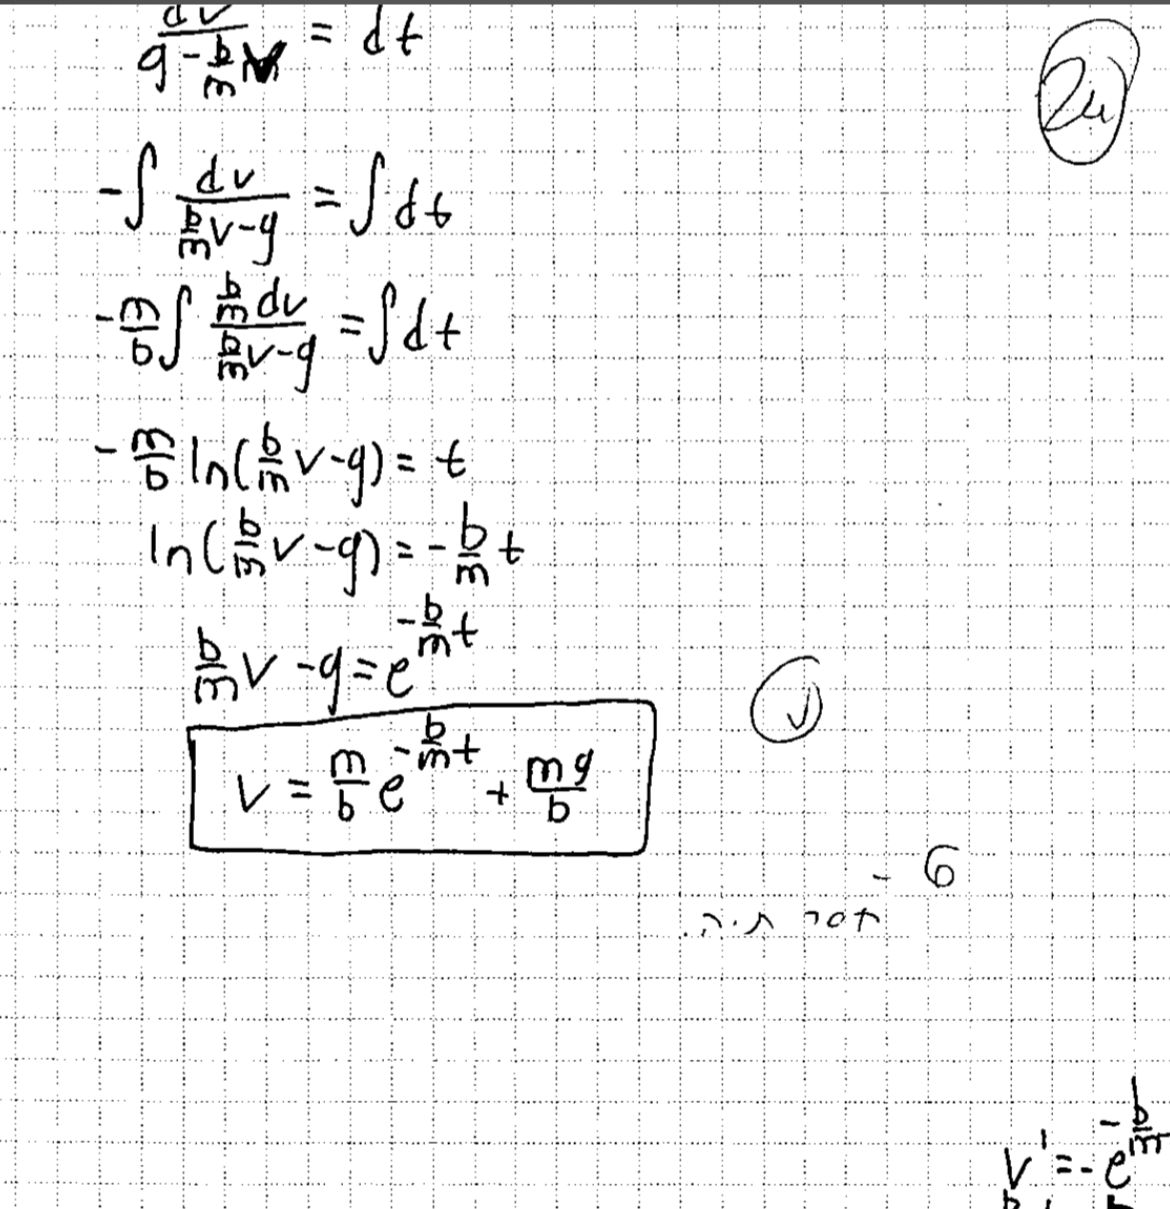 dv/(g - b/m v) = dt
-∫ dv/(b/m v - g) = ∫ dt
-m/b ∫ (b/m dv)/(b/m v - g) = ∫ dt
-m/b ln(b/m v - g) = t
ln(b/m v - g) = - b/m t
b/m v - g = e^(-b/m t)
v = m/b e^(-b/m t) + mg/b
- 6
חסר ת.ה.
v' = - e^(-b/m